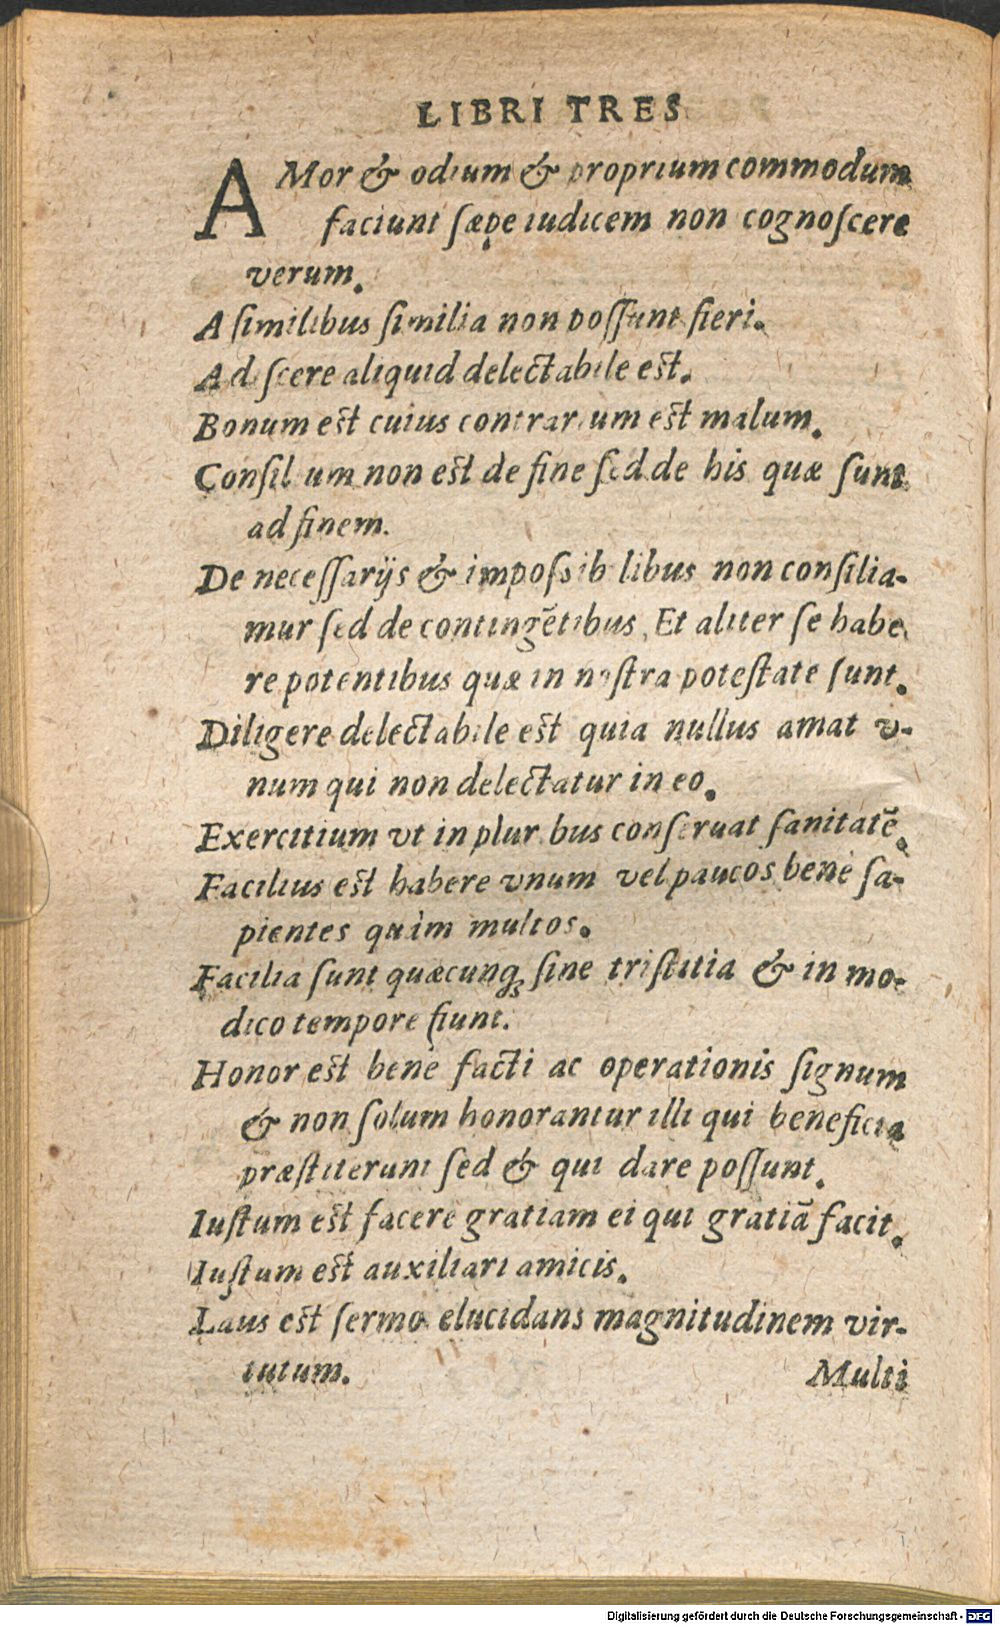 LIBRI TRES
AMor & odium & proprium commodum
faciunt sæpe iudicem non cognoſcere
verum.
A ſimilibus ſimilia non poſſunt fieri.
Adiſcere aliquid delectabile eſt.
Bonum eſt cuius contrarium eſt malum.
Conſilium non eſt de fine ſed de his quæ ſunt
ad finem.
De neceſſarijs & impoſsibilibus non conſilia-
mur ſed de contingẽtibus, Et aliter ſe habe
re potentibus quæ in noſtra poteſtate ſunt.
Diligere delectabile eſt quia nullus amat v-
num qui non delectatur in eo.
Exercitium vt in pluribus conſeruat ſanitatẽ.
Facilius eſt habere vnum vel paucos bene ſa-
pientes quàm multos.
Facilia ſunt quæcunqꝫ ſine triſtitia & in mo-
dico tempore fiunt.
Honor eſt bene facti ac operationis ſignum
& non ſolum honorantur illi qui beneficia
præſtiterunt ſed & qui dare poſſunt.
Iuſtum eſt facere gratiam ei qui gratiã facit.
Iuſtum eſt auxiliari amicis.
Laus eſt ſermo elucidans magnitudinem vir-
tutum.
Multi
Digitalisierung gefördert durch die Deutsche Forschungsgemeinschaft - DFG